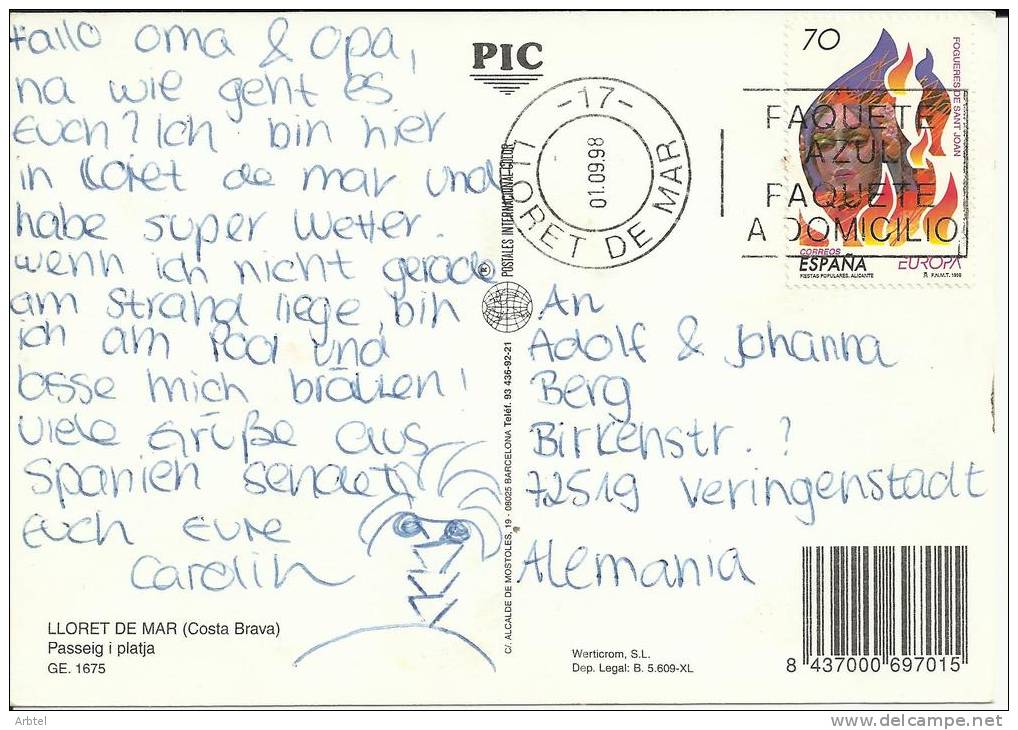 Hallo Oma & Opa,
na wie geht es
Euch? Ich bin hier
in Lloret de mar und
habe super Wetter.
Wenn ich nicht gerade
am Strand liege, bin
ich am Pool und
lasse mich bräunen!
Viele Grüße aus
Spanien sendet
Euch Eure
LLORET DE MAR (Costa Brava)
Passeig i platja
GE. 1675
PIC
POSTALES INTERNACIONAL COLOR
®
C/. ALCALDE DE MOSTOLES, 19 - 08025 BARCELONA Teléf. 93 436-92-21
-17-
LLORET DE MAR
01.09.98
PAQUETE
AZUL
PAQUETE
A DOMICILIO
70
FOGUERES DE SANT JOAN
CORREOS
ESPAÑA
EUROPA
FIESTAS POPULARES. ALICANTE
F.N.M.T. 1998
An
Adolf & Johanna
Berg
Birkenstr. ?
72519 Veringenstadt
Alemania
Werticrom, S.L.
Dep. Legal: B. 5.609-XL
8 437000 697015
Arbtel
www.delcampe.net